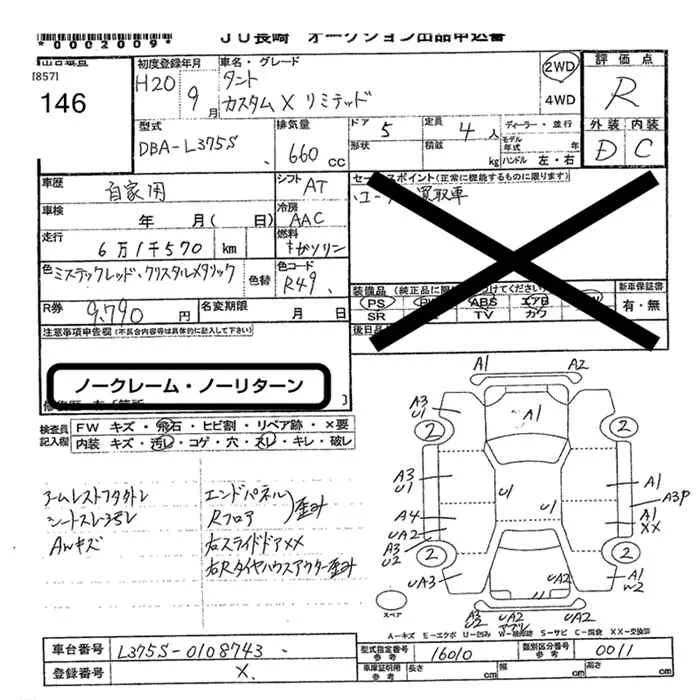 *0002009*
JU長崎 オークション出品申込書
[857]
146
初度登録年月
H20 9月
車名・グレード
タント
カスタムX リミテッド
2WD
4WD
評価点
R
外装 内装
D C
型式
DBA-L375S
排気量
660 cc
ドア 5
形状
定員 4人
積載 kg
ディーラー・並行
モデル年式 年
ハンドル 左・右
車歴 自家用
シフト AT
車検 年 月( 日)
冷房 AAC
走行 6万1千570 km
燃料 ガソリン
色 ミスティックレッド、クリスタルメタリック
色替
色コード R49
R券 9,790 円
名変期限 月 日
セールスポイント(正常に機能するものに限ります)
買取車
装備品
PS ABS エアB
SR TV カワ
新車保証書
有・無
後日品
注意事項申告欄(不具合内容等は具体的に記入して下さい)
ノークレーム・ノーリターン
検査員記入欄
FW キズ・飛石・ヒビ割・リペア跡・×要
内装 キズ・汚レ・コゲ・穴・スレ・キレ・破レ
アームレストフタタトレ
シートスレヨゴレ
AWキズ
エンドパネル
Rフロア
歪み
右スライドドアXX
右Rタイヤハウスアウター歪み
A1 A2
A3
U1
A1
2 2
A3
U1
U1
A1
A3P
A4
A1
XX
UA2
A3
U2
2 2
UA3
UA2
A1
W2
A3
U2
UA2
UA2
スペア
A-キズ E-エクボ U-凹み W-補修跡 S-サビ C-腐食 XX-交換済
車台番号 L375S-0108743
型式指定番号 参考 16010
類別区分番号 参考 0011
登録番号 X
車庫証明用 参考 長さ 幅 高さ